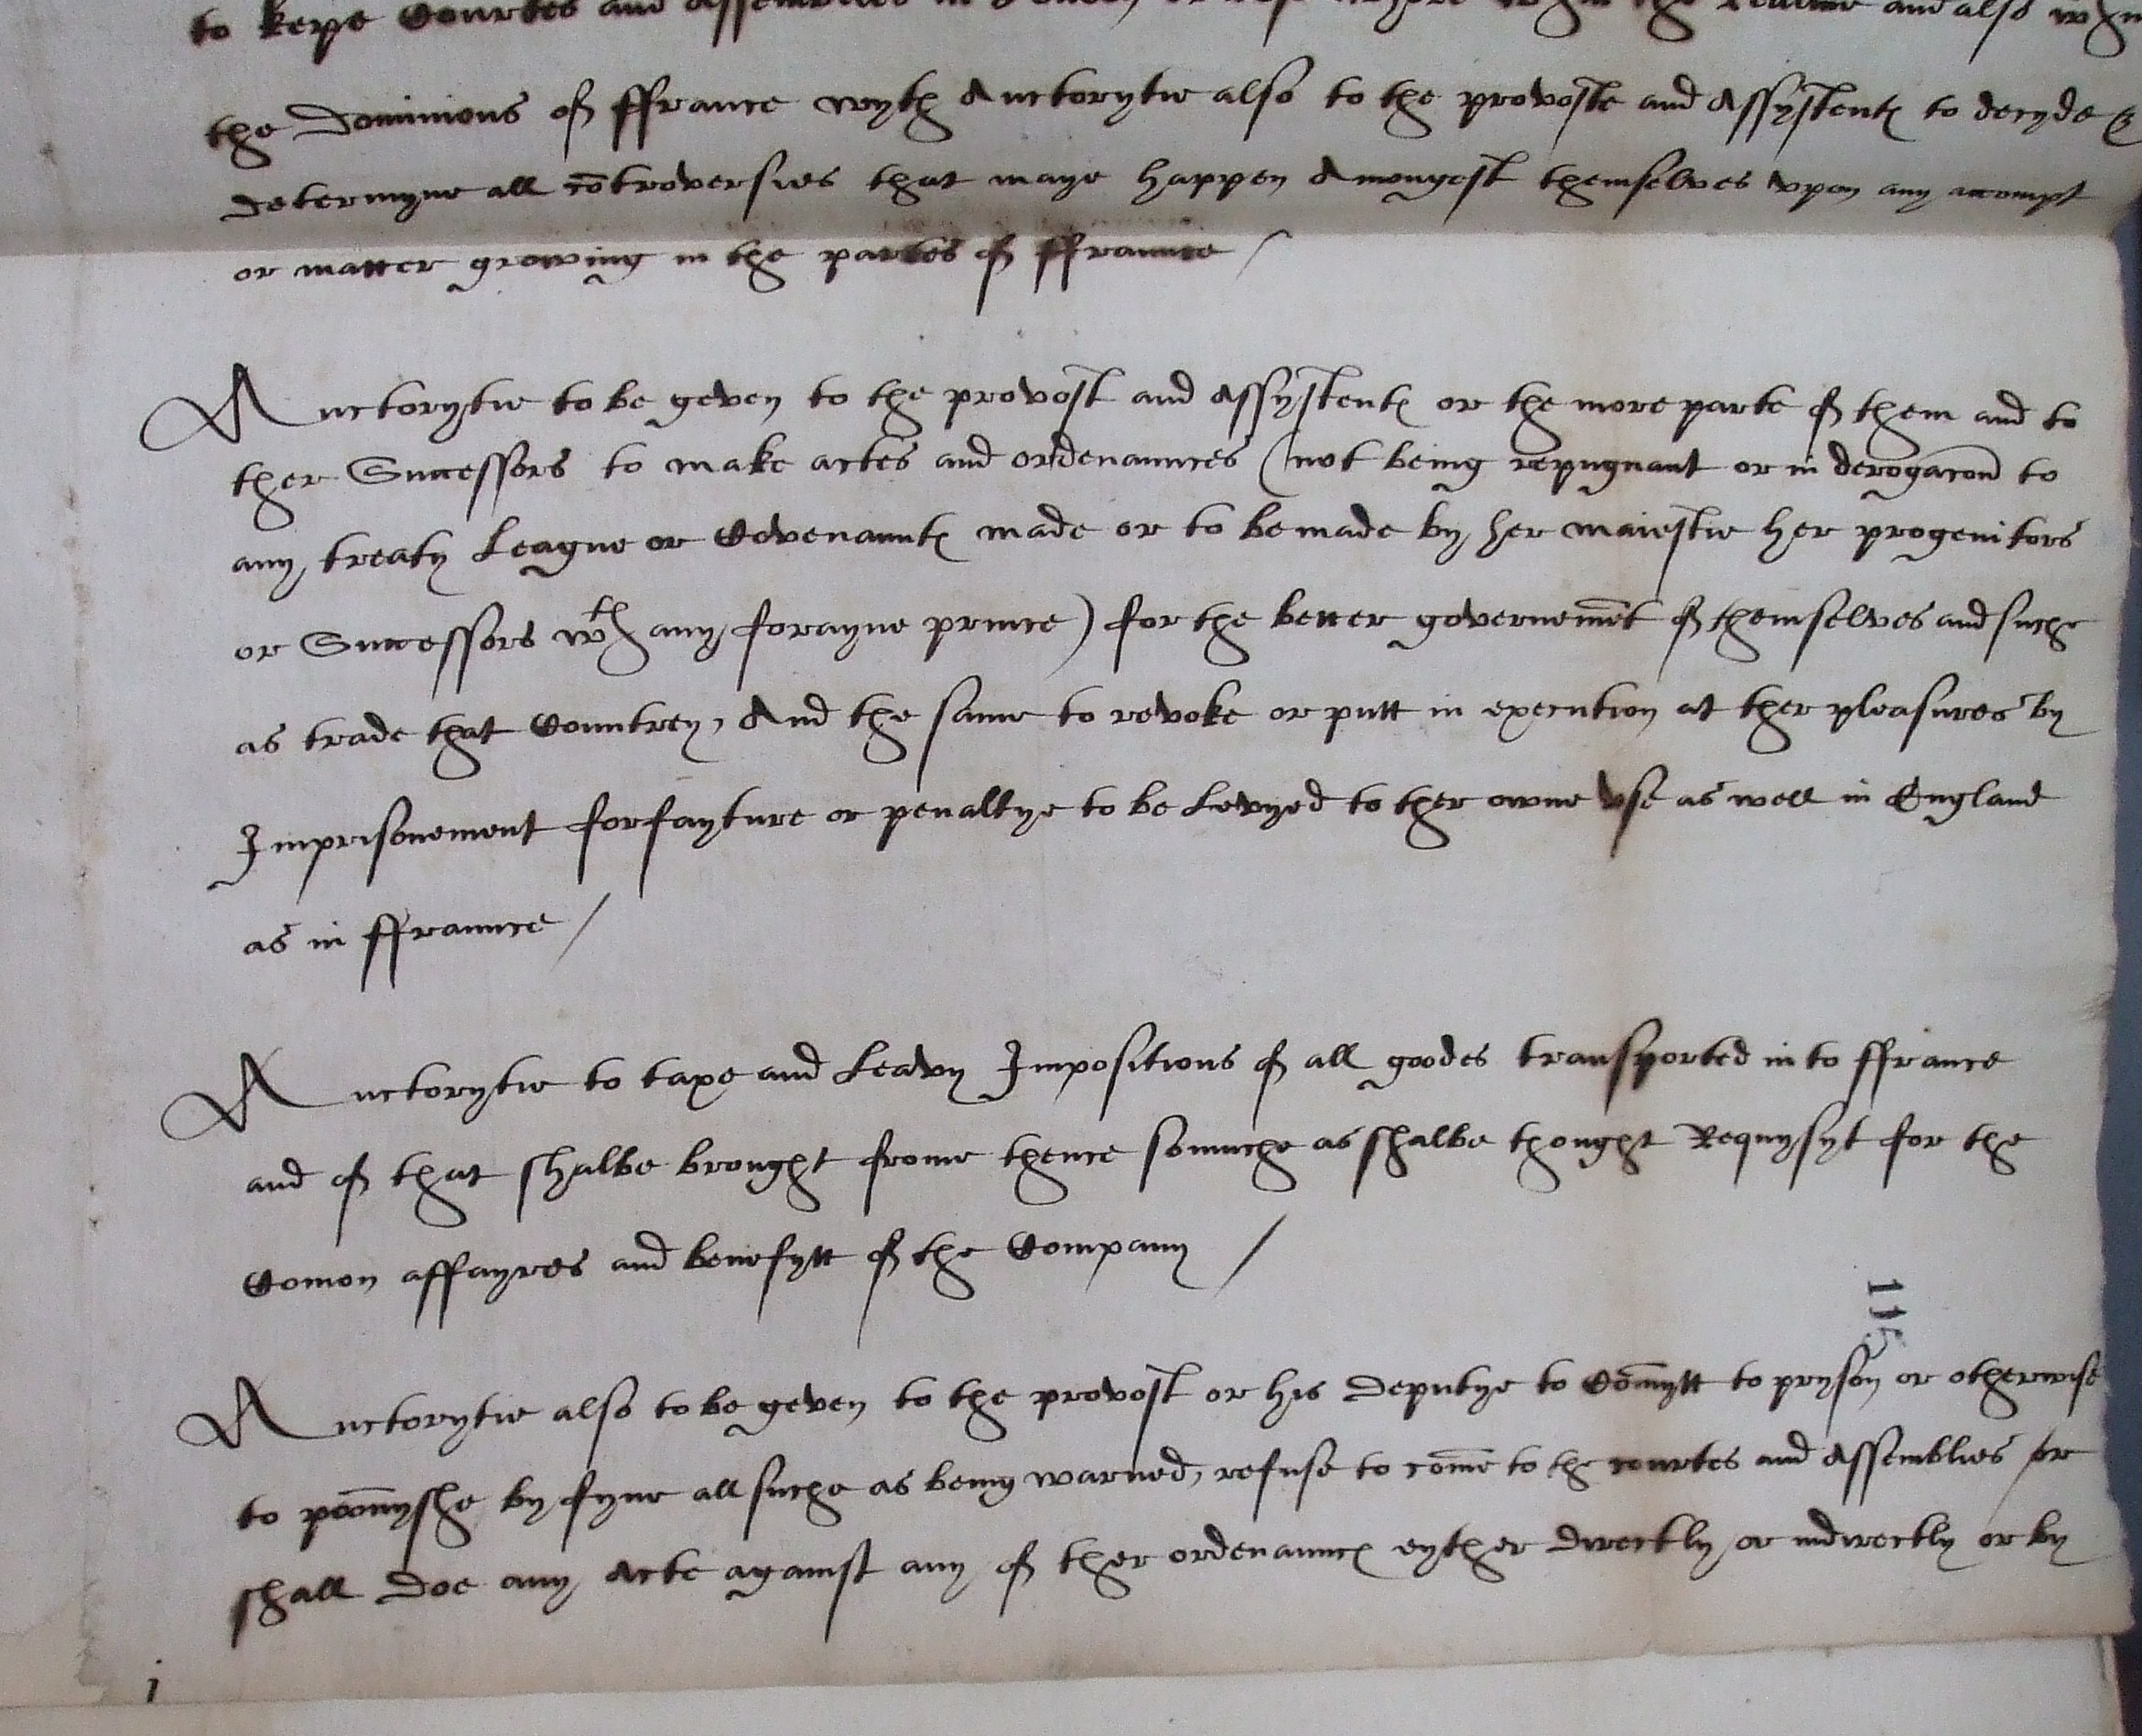 to kepe Courtes and Assemblies in or wher in the realme and also wthin
the Dominions of ffrance wyth Auctorytie also to the provoste and Assystentes to decyde &
determyne all cōtroversies that maye happen Amongest themselves vpon any accompt
or matter growing in the partes of ffraunce /
Auctorytie to be geven to the provost and Assystentes or the more parte of them and to
ther Successors to make actes and ordenaunces (not being repugnant or in derogacōn to
any treaty League or Covenauntes made or to be made by her maiestie her progenitors
or Successors wth any forayne prince) for the better governemēt of themselves and suche
as trade that Countrey, And the same to revoke or putt in execution at ther pleasures by
Imprisonement forfayture or penaltye to be Levyed to ther owne vse as well in England
as in ffraunce /
Auctorytie to taxe and Leavy Impositions of all goodes transported in to ffrance
and of that shalbe brought frome thence somuche as shalbe thought Requysyt for the
Comon affayres and benefytt of the Company /
115
Auctorytie also to be geven to the provost or his Deputye to Cōmytt to pryson or otherwise
to poōnyshe by fyne all suche as being warned, refuse to cōme to the courtes and Assemblies or
shall Doe any Acte against any of ther ordenaunces eyther Directly or indirectly or by
i